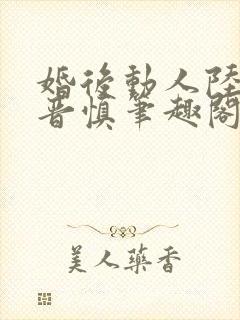 婚後動人陸
晋慎筆趣閣
美人藥香